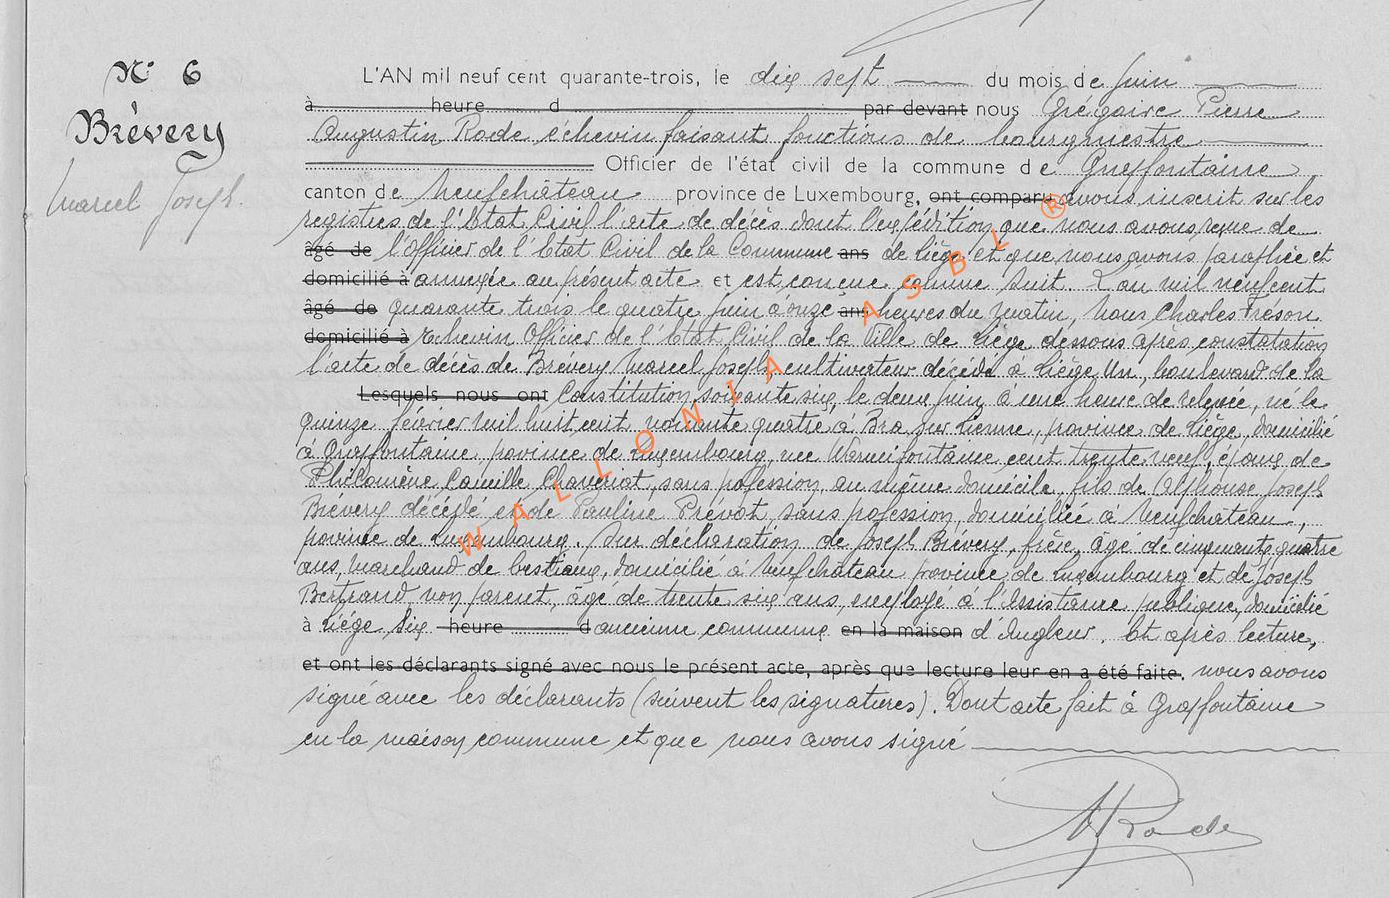 N° 6
Brévery
Marcel Joseph.
L'AN mil neuf cent quarante-trois, le dix sept du mois de juin
à heure d par devant nous Grégoire Pierre
Augustin Rode échevin faisant fonctions de bourgmestre
Officier de l'état civil de la commune de Grapfontaine
canton de Neufchâteau province de Luxembourg, ont comparu avons inscrit sur les
registres de l'Etat Civil l'acte de décès dont l'expédition que nous avons reçue de
âgé de l'officier de l'Etat Civil de la Commune ans de Liège et que nous avons paraphée et
domicilié à annexée au présent acte et est conçue comme suit. L'an mil neuf cent
âgé de quarante trois le quatre juin à onze ans heures du matin, Nous Charles Fréson
domicilié à Echevin Officier de l'Etat Civil de la Ville de Liège dessons après constatation
l'acte de décès de Brévery Marcel Joseph cultivateur décédé à Liège Un, boulevard de la
Lesquels nous ont Constitution soixante six, le deux juin à une heure de relevée, né le
quinze février mil huit cent nonante quatre à Bra sur Lienne, province de Liège, domicilié
à Grapfontaine province de Luxembourg, rue Warmifontaine cent trente neuf, époux de
Philomène Camille Chavériat, sans pofession, au même domicile, fils de Alphonse Joseph
Brévery décédé et de Pauline Prévot, sans pofession, domiciliée à Neufchateau,
povince de Luxembourg. Sur déclaration de Joseph Brévery, frère, âgé de cinquante quatre
ans, marchand de bestiaux, domicilié à Neufchâteau province de Luxembourg et de Joseph
Bertrand non parent, âgé de trente six ans, employé à l'Assistance publique, domicilié
à Liège six heure d ancienne commune en la maison d'Angleur. Et après lecture,
et ont les déclarants signé avec nous le présent acte, après que lecture leur en a été faite. nous avons
signé avec les déclarants (suivent les signatures). Dont acte fait à Grapfontaine
en la maison commune et que nous avons signé
A Rode
WALLONIA ASBL ®